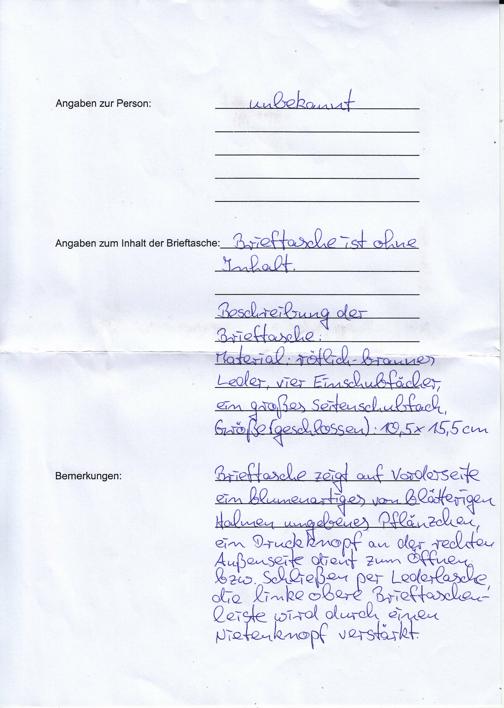 Angaben zur Person: unbekannt
Angaben zum Inhalt der Brieftasche: Brieftasche ist ohne
Inhalt.
Beschreibung der
Brieftasche:
Material: rötlich-braunes
Leder, vier Einschubfächer,
ein großes Seitenschubfach,
Größe (geschlossen): 10,5 x 15,5 cm
Bemerkungen: Brieftasche zeigt auf Vorderseite
ein blumenartiges von blätterigen
Halmen umgebenes Pflänzchen,
ein Druckknopf an der rechten
Außenseite dient zum Öffnen
bzw. Schließen per Lederlasche,
die linke obere Brieftaschen-
leiste wird durch einen
Nietenknopf verstärkt.